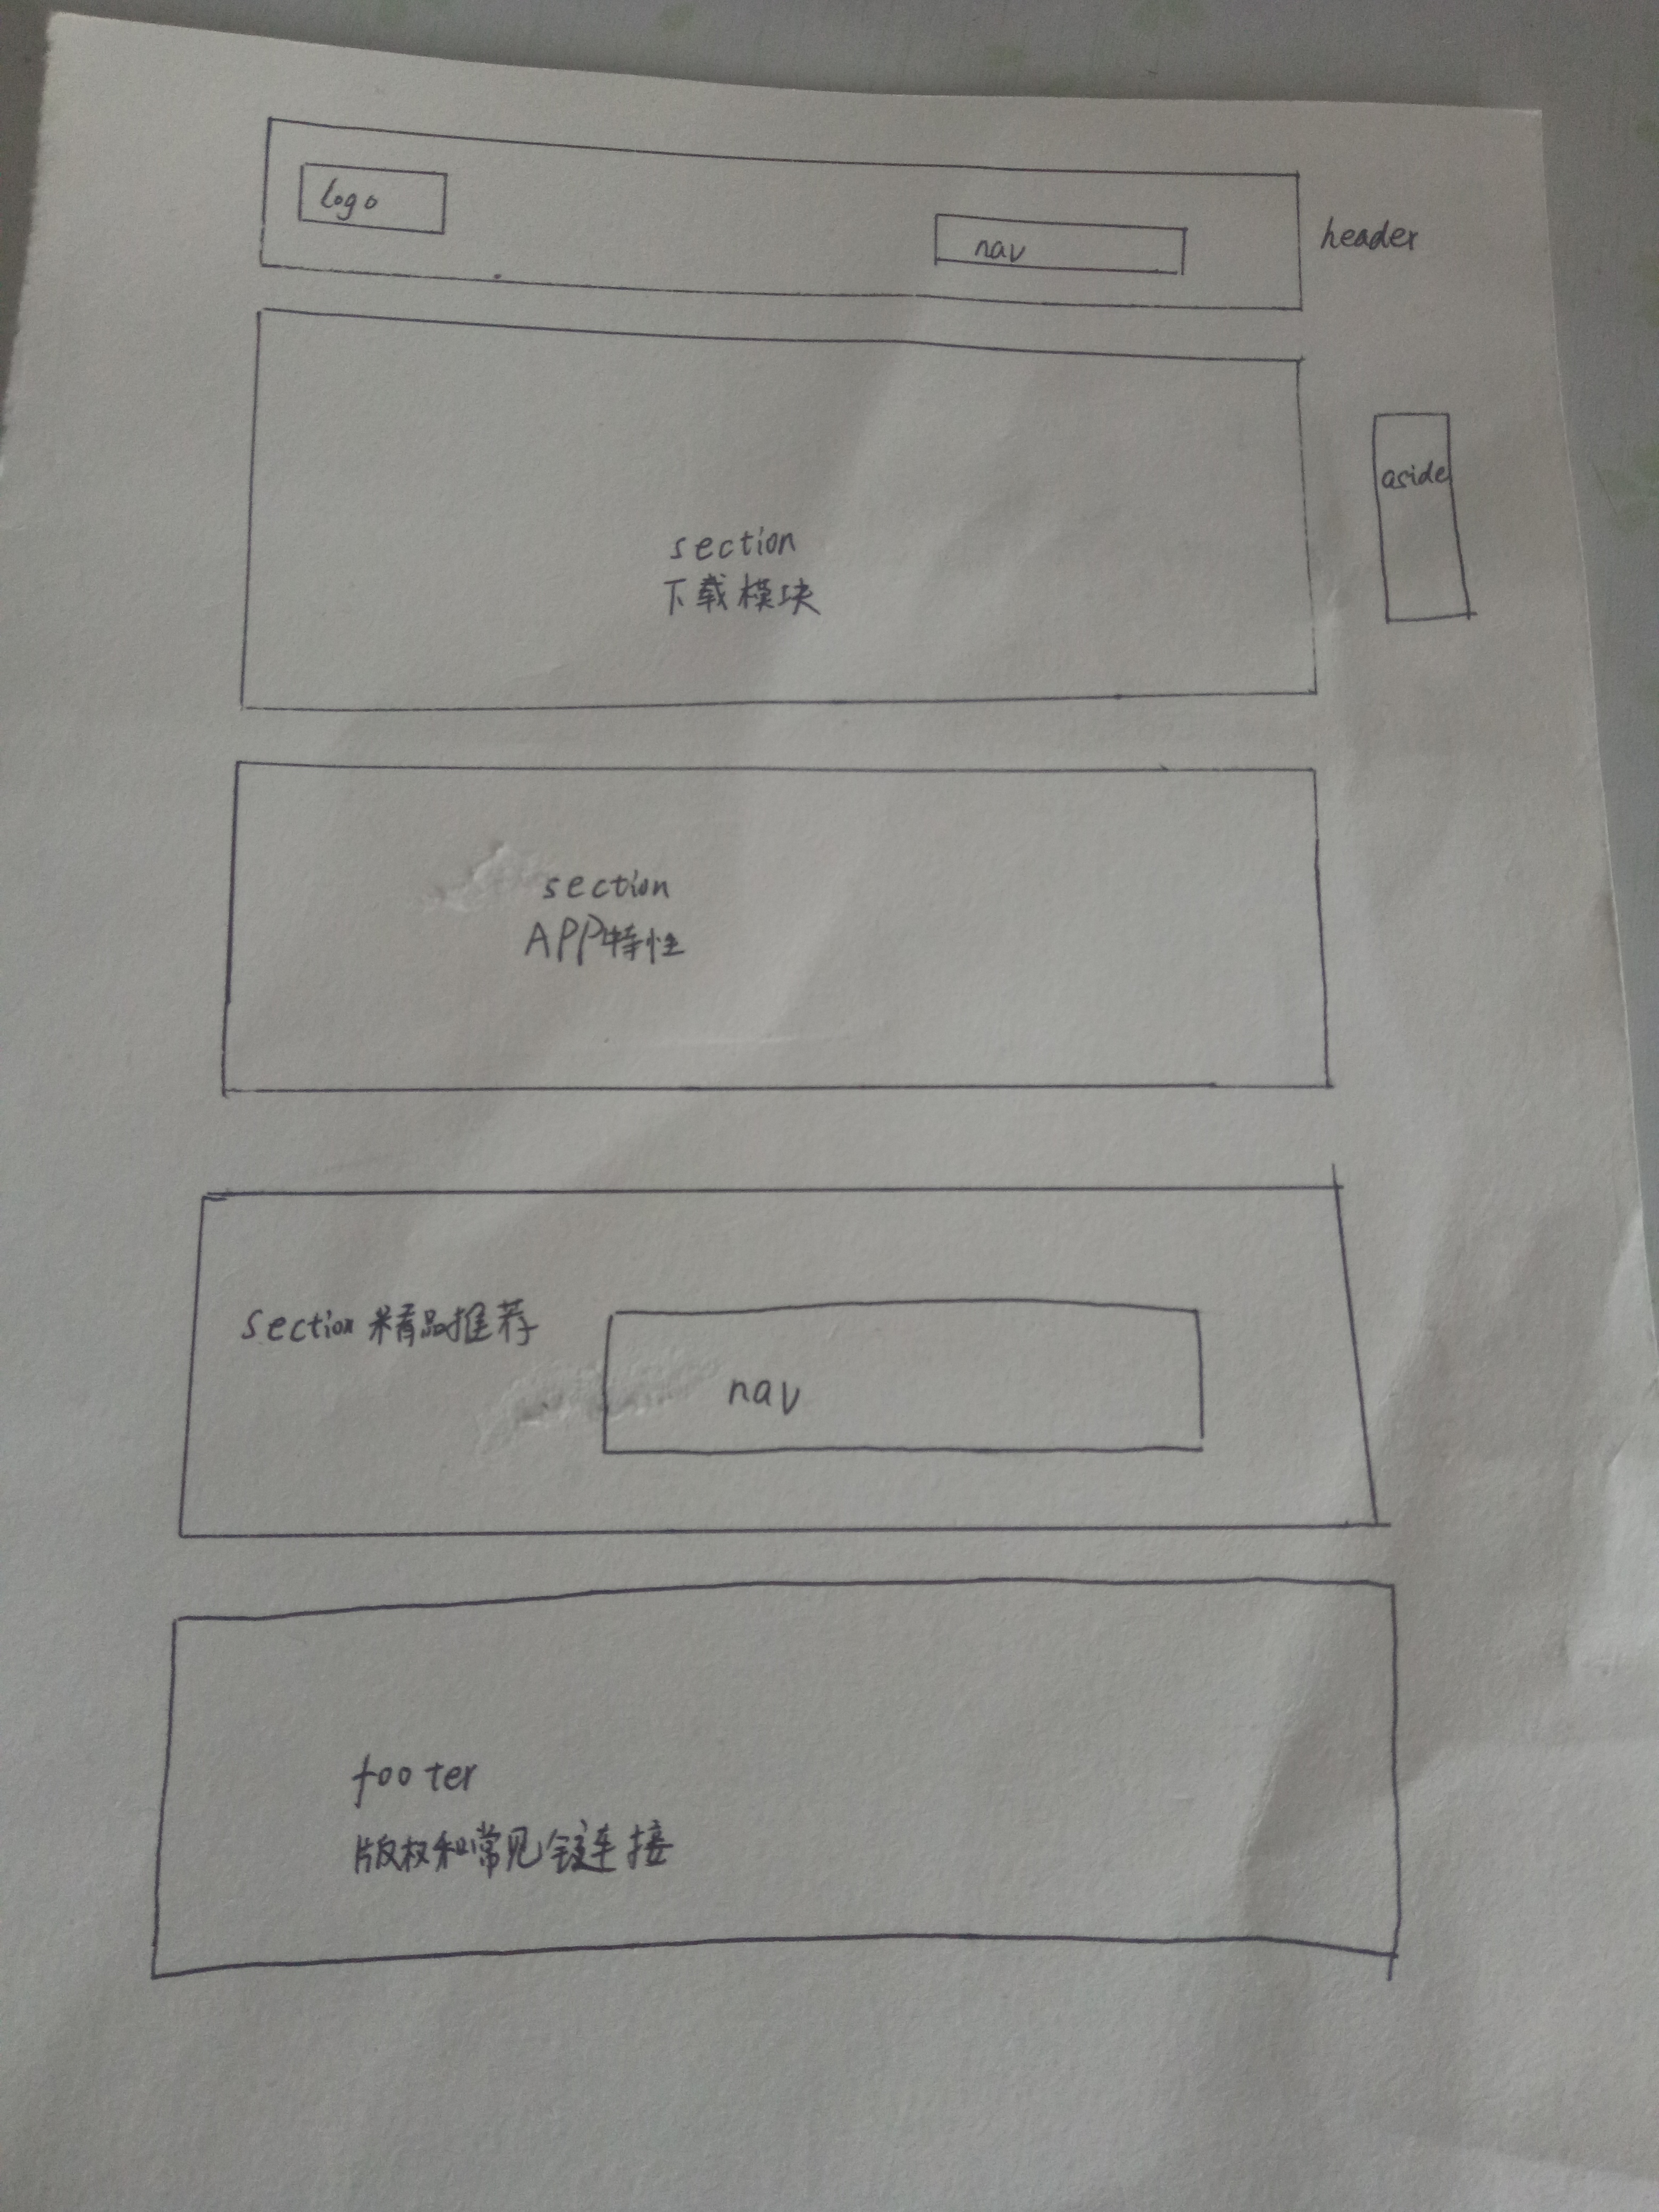 logo
nav
header
section
下载模块
aside
section
APP特性
section 精品推荐
nav
footer
版权和常见链连接